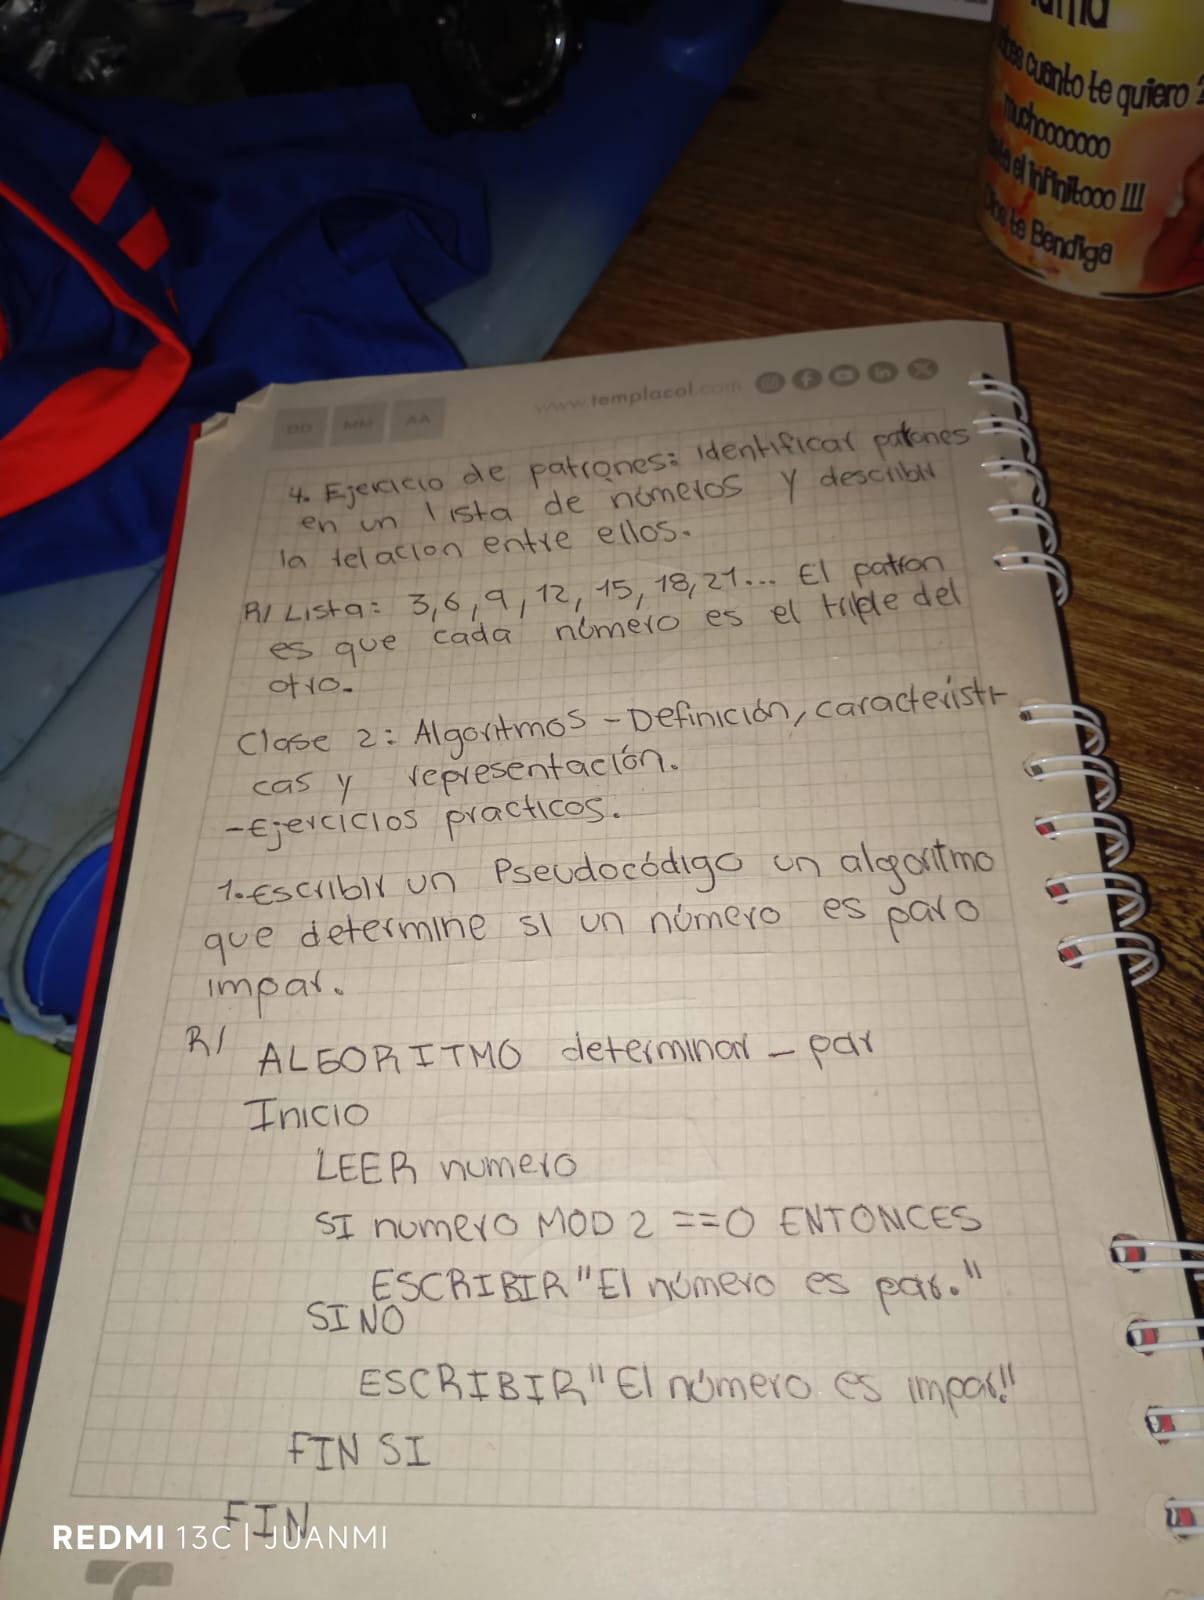 mamá
sabes cuanto te quiero ?
muchooooooo
hasta el infinitooo !!!
Dios te Bendiga
www.templacol.com
DD MM AA
4. Ejercicio de patrones: identificar patrones
en un lista de números y describir
la relacion entre ellos.
R/ Lista: 3,6,9,12,15,18,21... El patron
es que cada número es el triple del
otro.
Clase 2: Algoritmos - Definición, característi-
cas y representación.
- Ejercicios practicos.
1. Escribir un Pseudocódigo un algoritmo
que determine si un número es par o
impar.
R/ ALGORITMO determinar - par
Inicio
LEER numero
SI numero MOD 2 ==0 ENTONCES
ESCRIBIR "El número es par."
SINO
ESCRIBIR "El número es impar."
FIN SI
FIN
REDMI 13C | JUANMI